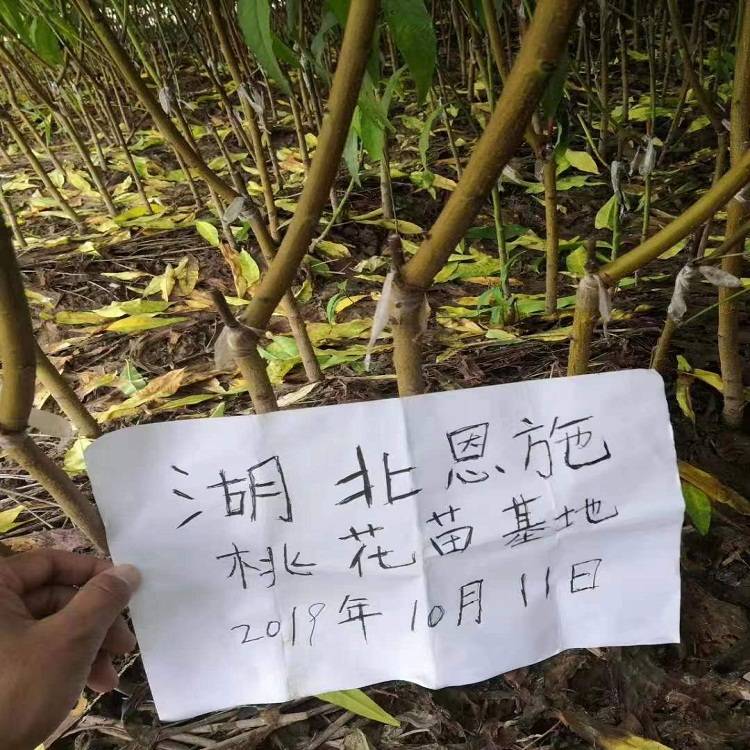 湖北恩施
桃花苗基地
2019年10月11日